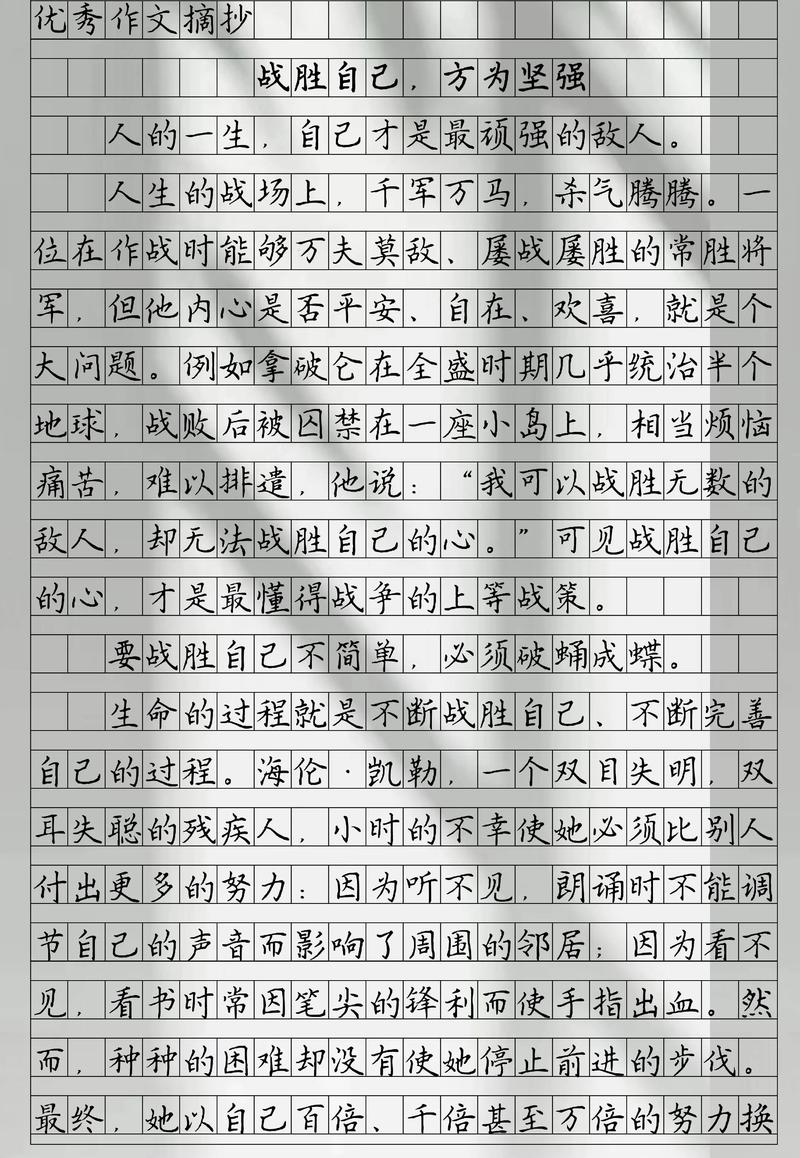 优秀作文摘抄
战胜自己，方为坚强
人的一生，自己才是最顽强的敌人。
人生的战场上，千军万马，杀气腾腾。一
位在作战时能够万夫莫敌、屡战屡胜的常胜将
军，但他内心是否平安、自在、欢喜，就是个
大问题。例如拿破仑在全盛时期几乎统治半个
地球，战败后被囚禁在一座小岛上，相当烦恼
痛苦，难以排遣，他说：“我可以战胜无数的
敌人，却无法战胜自己的心。”可见战胜自己
的心，才是最懂得战争的上等战策。
要战胜自己不简单，必须破蛹成蝶。
生命的过程就是不断战胜自己、不断完善
自己的过程。海伦·凯勒，一个双目失明，双
耳失聪的残疾人，小时的不幸使她必须比别人
付出更多的努力：因为听不见，朗诵时不能调
节自己的声音而影响了周围的邻居；因为看不
见，看书时常因笔尖的锋利而使手指出血。然
而，种种的困难却没有使她停止前进的步伐。
最终，她以自己百倍、千倍甚至万倍的努力换